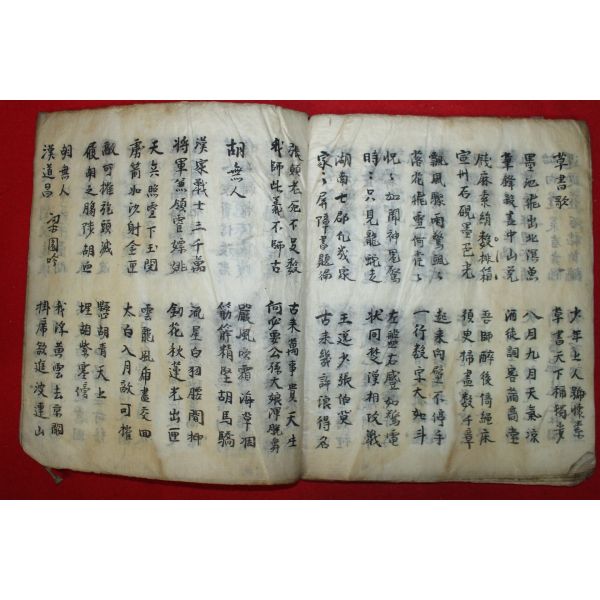 草書歌
少年上人號懷素
草書天下稱獨步
墨池飛出北溟魚
筆鋒殺盡中山兔
八月九月天氣凉
酒徒詞客滿高堂
牋麻素絹數排箱
宣州石硯墨色光
吾師醉後倚繩床
須臾掃盡數千章
飄風驟雨驚颯〻
落花飛雪何茫〻
起來向壁不停手
一行數字大如斗
怳〻如聞神鬼驚
時〻只見龍蛇走
左盤右蹙如驚電
狀同楚漢相攻戰
湖南七郡凡幾家
家〻屏障書題遍
王逸少張伯英
古來幾許浪得名
張顚老死不足數
我師此義不師古
古來萬事貴天生
何必要公孫大娘渾脫舞
胡無人
嚴風吹霜海草凋
筋箭精堅胡馬驕
漢家戰士三千萬
將軍兼領霍嫖姚
流星白羽腰間柳
劒花秋蓮光出匣
天兵照雪下玉関
虜箭如沙射金匣
雲龍風虎盡交回
太白入月敵可摧
敵可摧旄頭滅
履胡之膓涉胡血
懸胡青天上
埋胡紫塞傍
胡無人
漢道昌
梁園吟
我浮黃雲去京闕
掛席欲進波連山